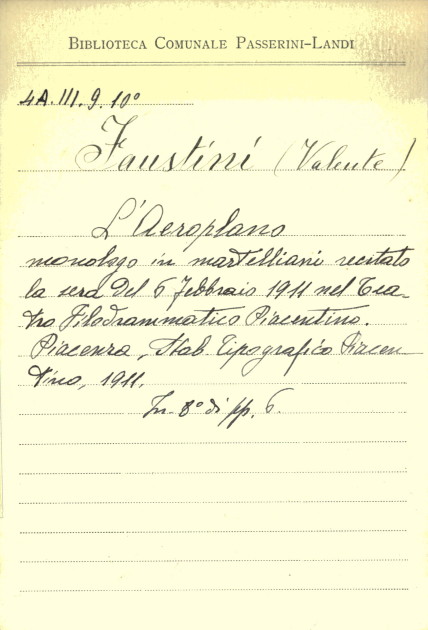 BIBLIOTECA COMUNALE PASSERINI-LANDI
4A. III. 9. 10°
Faustini (Valente)
L'Aeroplano
monologo in martelliani recitato
la sera del 6 Febbraio 1911 nel Tea-
tro Filodrammatico Piacentino.
Piacenza, Stab. Tipografico Piacen-
tino, 1911.
In 8° di pp. 6.